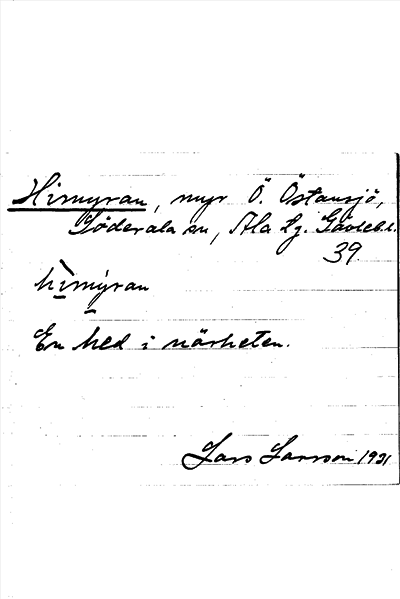 Himyran, myr Ö. Östansjö,
Söderala sn, Ala tg. Gävleb. l.
39
hìmýran
En hed i närheten.
Lars Larsson 1931